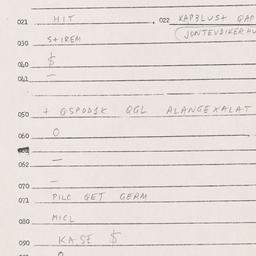 021 HIT , 022 KAP3LUS+ QAP
030 S+IREM (JONTEVDIKERHV
040 $
041 —
050 + QSPOD1K QGL ALANGEXALAT
060 O
—
062 —
070 —
071 PILC GET GERM
080 MICL
090 KA.SE $
O